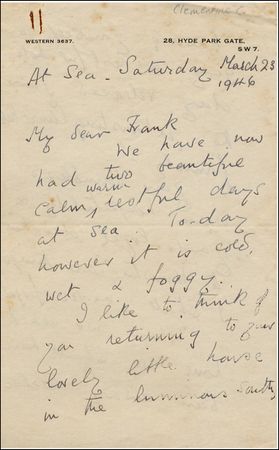 Clementine C.
WESTERN 3637.
28, HYDE PARK GATE,
S.W.7.
At Sea - Saturday March 23
1946
My dear Frank
We have now
had two beautiful
warm
calm, restful days
at sea. To-day
however it is cold,
wet & foggy.
I like to think of
you returning to your
lovely little house
in the luminous South,